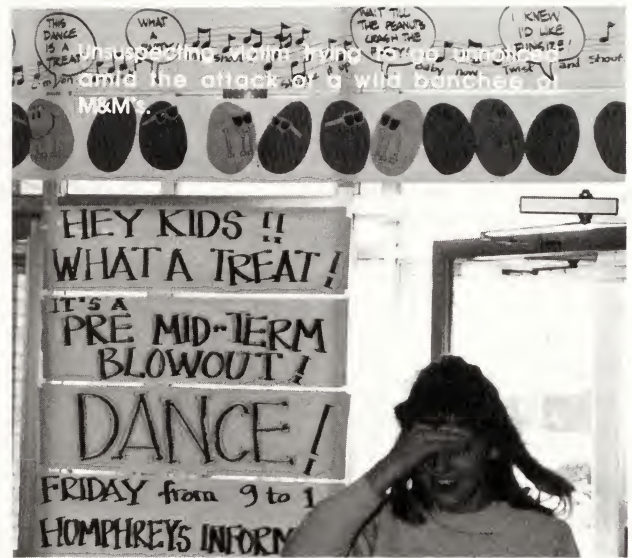 THIS
DANCE
IS A
TREAT
WHAT
A
WAIT TILL
THE PEANUTS
CRASH THE
PARTY
I KNEW
I'D LIKE
Twist
and Shout.
now
Unsuspecting victim trying to go unnoticed
amid the attack of a wild banchee of
M&M's.
HEY KIDS !!
WHAT A TREAT!
IT'S A
PRE MID-TERM
BLOWOUT!
DANCE!
FRIDAY from 9 to 1
HOMPHREYS INFORM